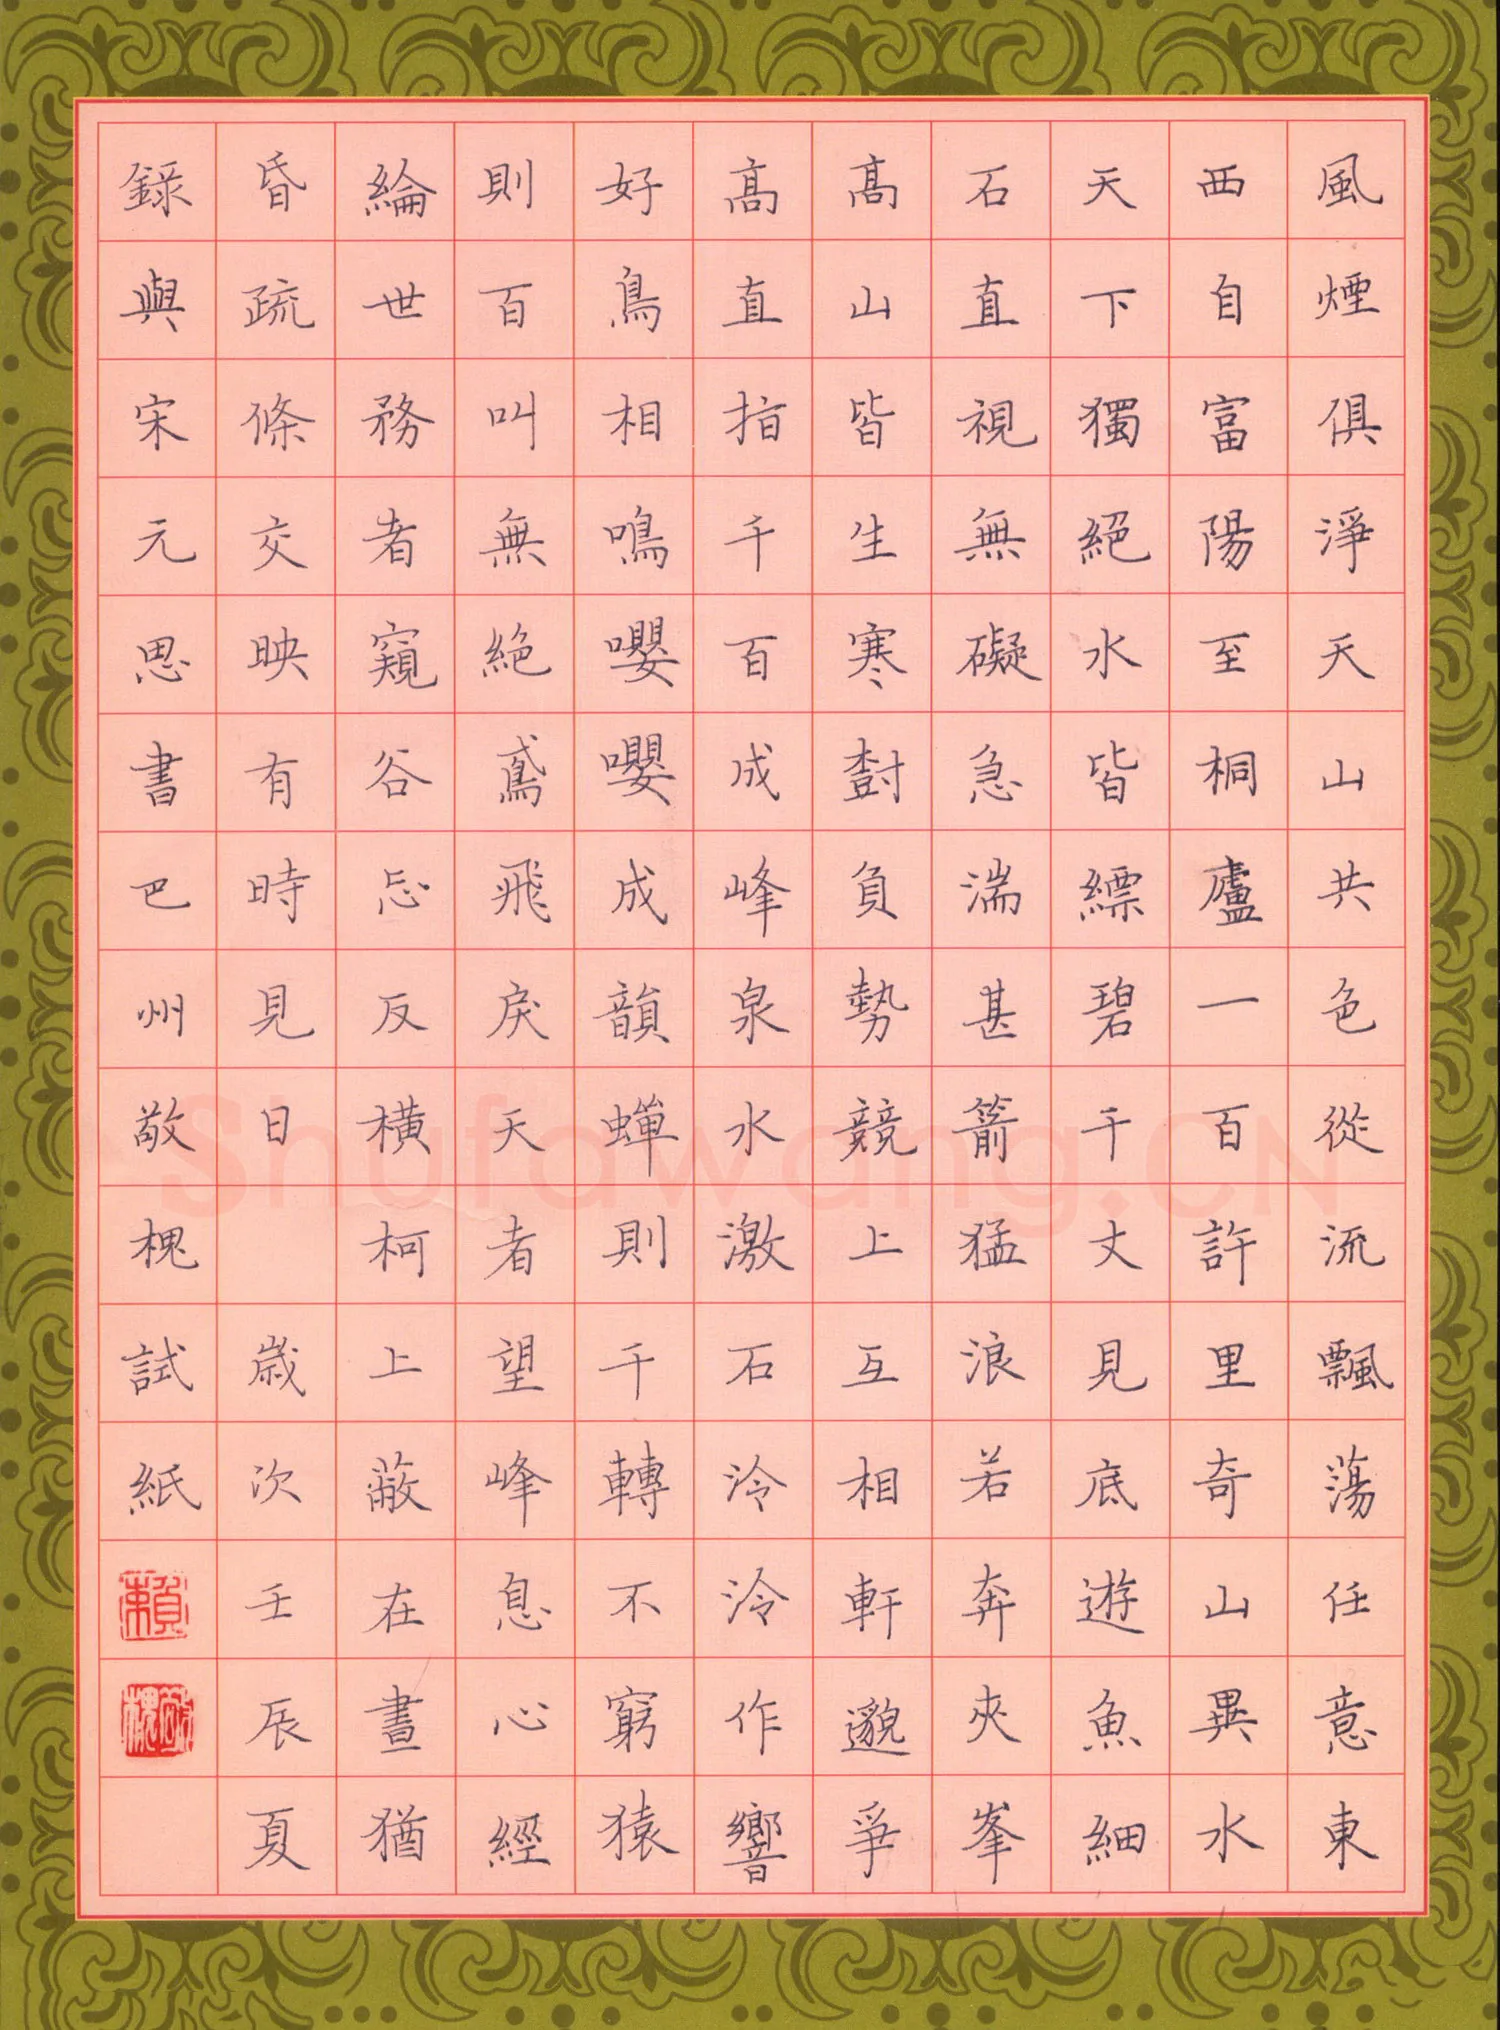 風煙俱淨天山共色從流飄蕩任意東
西自富陽至桐廬一百許里奇山異水
天下獨絕水皆縹碧千丈見底遊魚細
石直視無礙急湍甚箭猛浪若奔夾峯
髙山皆生寒樹負勢競上互相軒邈爭
髙直指千百成峰泉水激石泠泠作響
好鳥相鳴嚶嚶成韻蟬則千轉不窮猿
則百叫無絕鳶飛戾天者望峰息心經
綸世務者窺谷忘反橫柯上蔽在晝猶
昏疏條交映有時見日 歲次壬辰夏
錄與宋元思書巴州敞槐試紙
賴
敞槐
Shufawang.CN